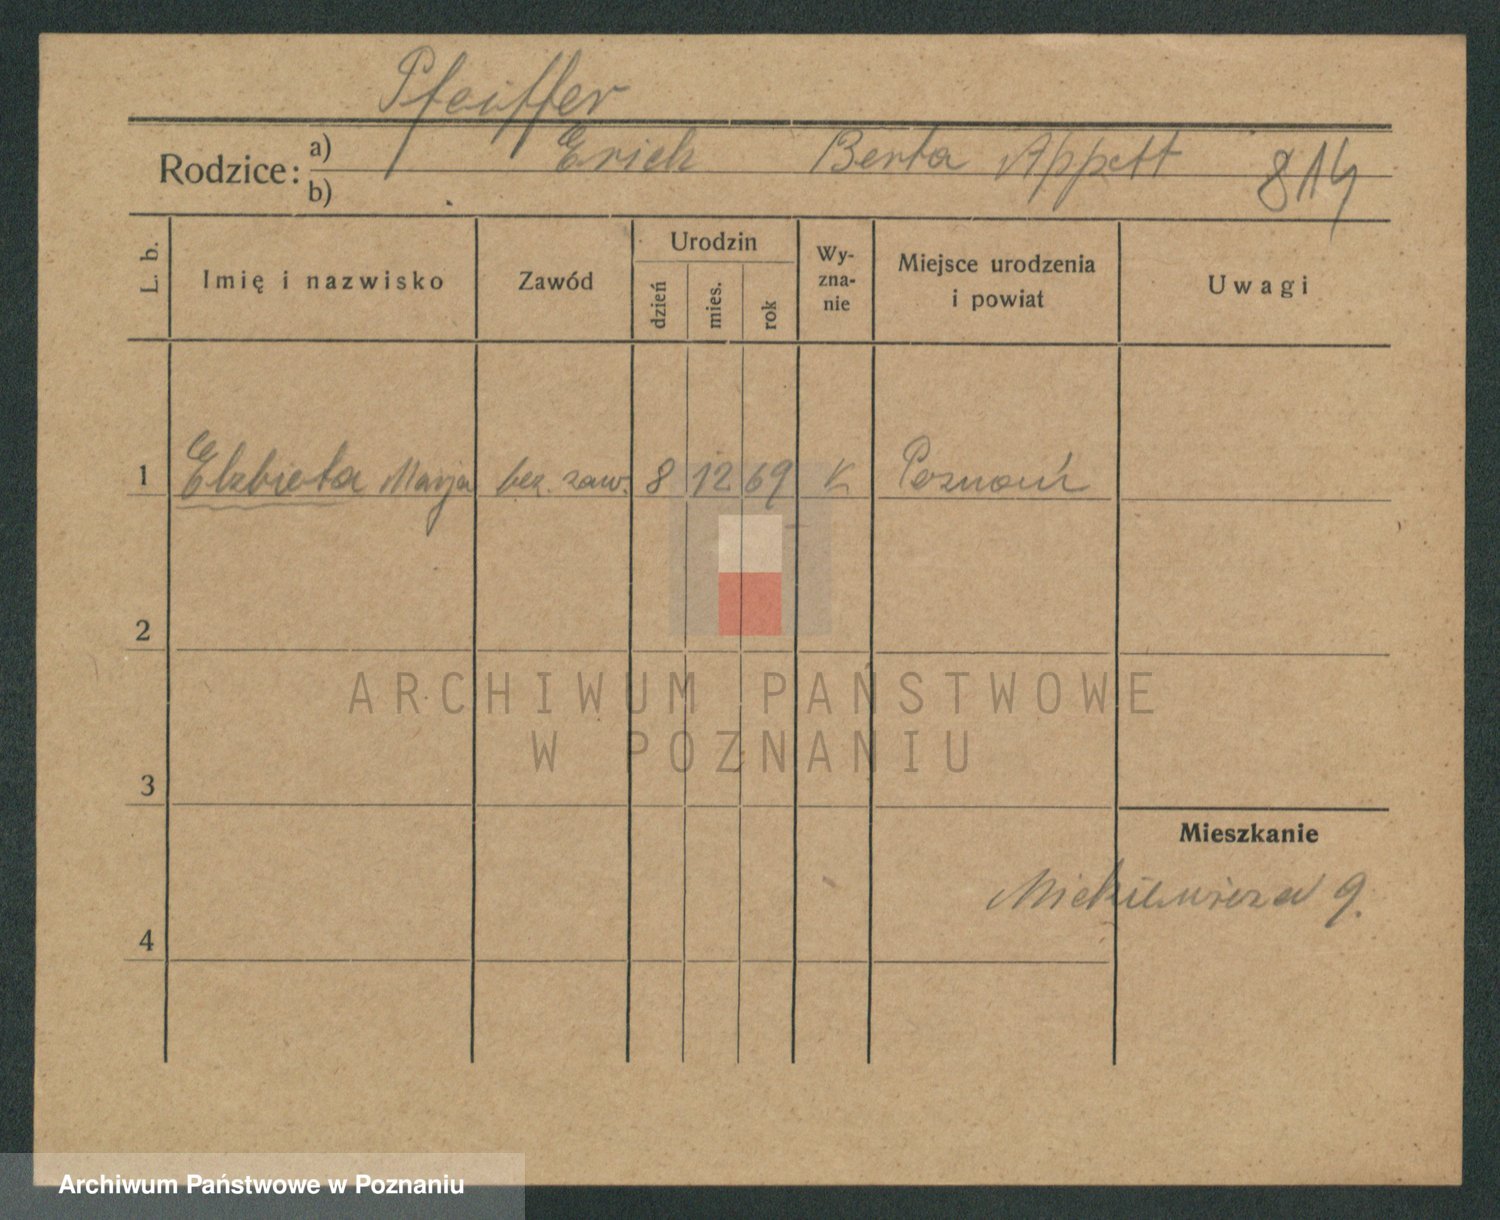 Pfeiffer
Rodzice: a) Erich Berta Appelt
b) 814
L. b. Imię i nazwisko Zawód Urodzin dzień mies. rok Wy-zna-nie Miejsce urodzenia i powiat Uwagi
1 Elżbieta Marja bez zaw. 8 12 69 K Poznań
2
ARCHIWUM PAŃSTWOWE
W POZNANIU
3
Mieszkanie
Mickiewicza 9.
4
Archiwum Państwowe w Poznaniu